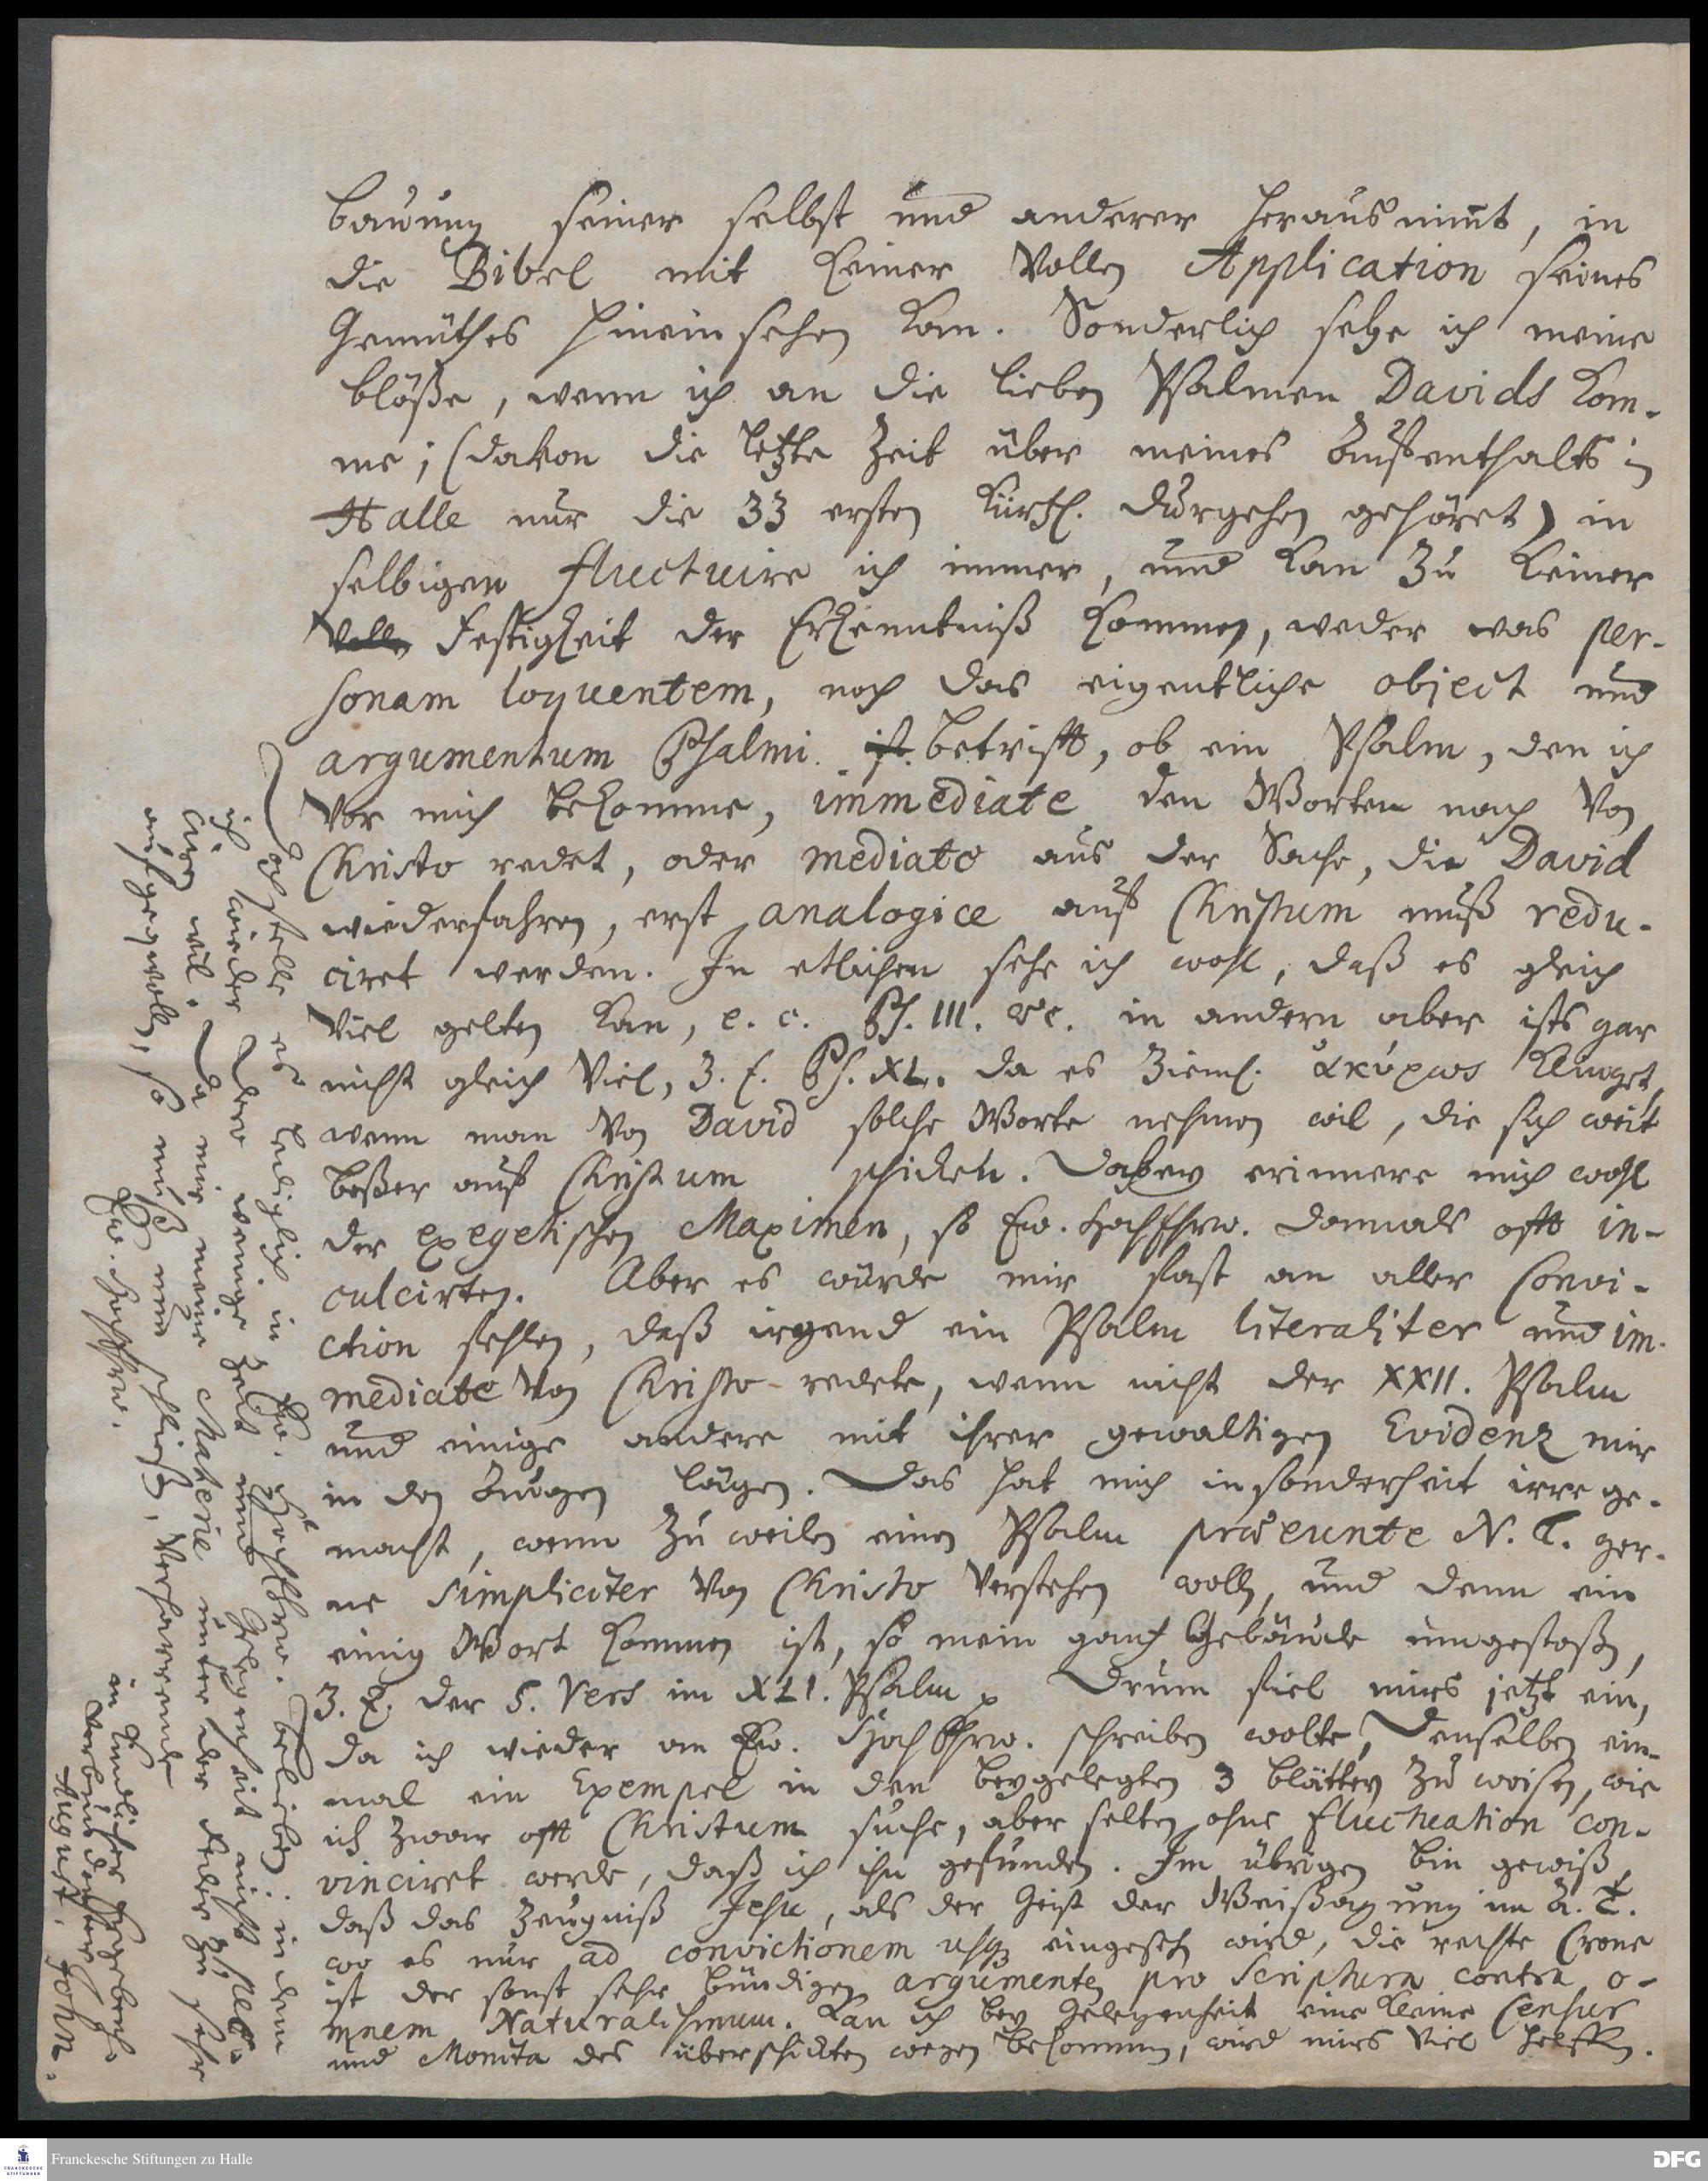 bauung seiner selbst und anderer herausnim̄t, in
die Bibel mit keiner vollen Application seines
Gemüthes hineinsehen kan. Sonderlich sehe ich meine
blöße, wenn ich an die lieben Psalmen Davids kom-
me; (davon die letzte Zeit über meines Auffenthalts in
Halle nur die 33 ersten kürtzl. durgehen gehöret) in
selbigen fluctuire ich immer, und kan zu keiner
Festigkeit der Erkenntniß kommen, weder was per-
sonam loquentem, noch das eigentliche object und
argumentum Psalmi betrifft, ob ein Psalm, den ich
vor mich bekomme, immediate den Worten nach von
Christo redet, oder mediate aus der Sache, die David
wiederfahren, erst analogice auf Christum muß redu-
ciret werden. In etlichen sehe ich wohl, daß es gleich
viel gelten kan, e. c. Ps. III. &c. in andern aber ists gar
nicht gleich viel, z. E. Ps. XL. da es zieml. ἀκύρως klinget,
wenn man von David solche Worte nehmen wil, die sich weit
beßer auf Christum schicken. Dabey erinnere mich wohl
der exegetischen Maximen, so Ew. HochEhrw. damals offt in-
culcirten. Aber es würde mir fast an aller Convi-
ction fehlen, daß irgend ein Psalm literaliter und im-
mediate von Christo redete, wenn nicht der XXII. Psalm
und einige andere mit ihrer gewaltigen Evidenz mir
in den Augen lägen. Das hat mich insonderheit irre ge-
macht, wenn zuweilen einen Psalm præeunte N. T. ger-
ne simpliciter von Christo verstehen wolln, und denn ein
einig Wort kommen ist, so mein gantz Gebäude umgestoßen,
z. E. der 5. Vers im XLI. Psalm. Drum fiel mirs jetzt ein,
da ich wieder an Ew. HochEhrw. schreiben wolte, Denselben ein-
mal ein Exempel in den beygelegten 3 blättern zu weisen, wie
ich zwar offt Christum suche, aber selten ohne fluctuation con-
vinciret werde, daß ich ihn gefunden. Im übrigen bin gewiß,
daß das Zeugniß Jesu, als der Geist der Weißagung im A. T.
wo es nur ad convictionem usq; eingesehn wird, die rechte Crone
ist der sonst sehr bündigen argumenten pro Scriptura contra o-
mnem Naturalismum. Kan ich bey Gelegenheit eine kleine Censur
und Monita des überschickten wegen bekommen, wird mirs viel helffen.
stelle es lediglich in Ew. HochEhrw. belieben: indem
ich wieder der wenige Zeit und Gelegenheit nicht
wil. Da mir meine Materie unter der Feder zu sehr
aufgequollen, so muß nun schließen, verharrende
Ew. HochEhrw.
zu kindlicher Fürgebeth
verbundenster
August. John.
Franckesche Stiftungen zu Halle
FRANCKESCHE STIFTUNGEN
DFG